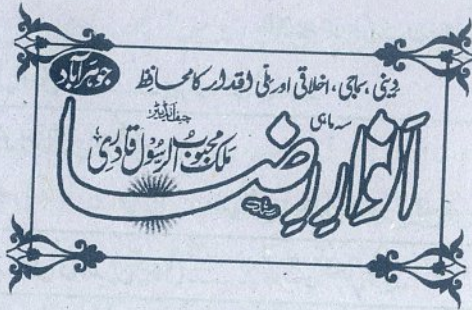 جوہرآباد
دینی، سماجی، اخلاقی اور ملی اقدار کا محافظ
سہ ماہی
انوارِ رضا
چیف ایڈیٹر
ملک محبوب الرسول قادری